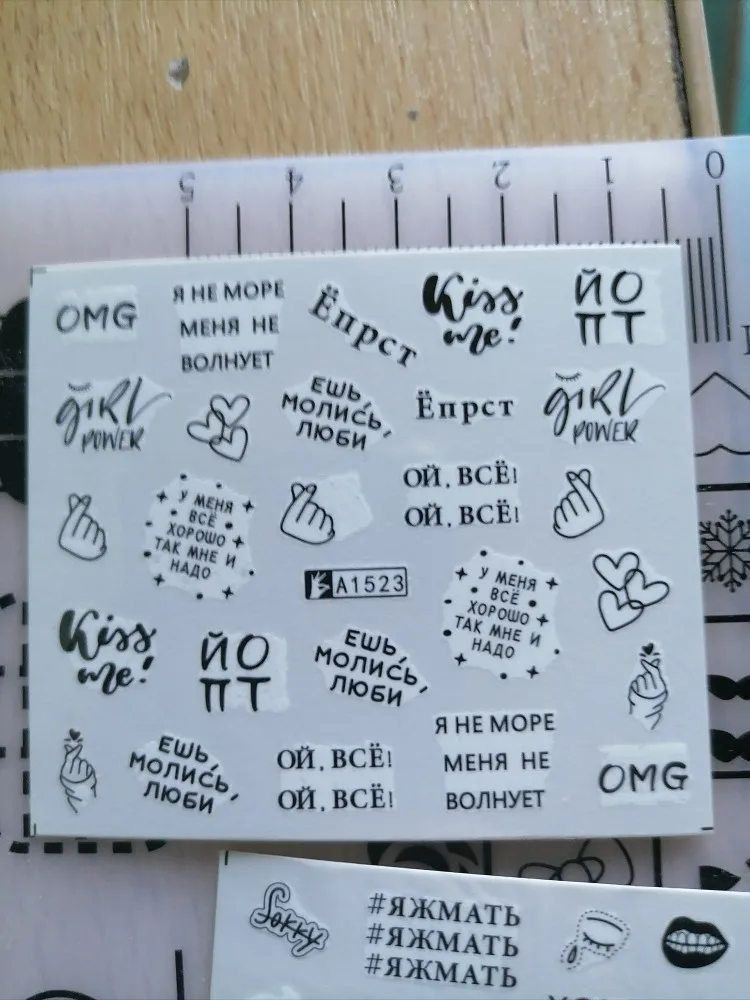 5 4 3 2 1 0
OMG
Я НЕ МОРЕ
МЕНЯ НЕ
ВОЛНУЕТ
Ёпрст
Kiss
me!
ЙО
ПТ
GIRL
POWER
ЕШЬ,
МОЛИСЬ,
ЛЮБИ
Ёпрст
GIRL
POWER
У МЕНЯ
ВСЁ
ХОРОШО
ТАК МНЕ И
НАДО
ОЙ, ВСЁ!
ОЙ, ВСЁ!
A1523
У МЕНЯ
ВСЁ
ХОРОШО
ТАК МНЕ И
НАДО
Kiss
me!
ЙО
ПТ
ЕШЬ,
МОЛИСЬ,
ЛЮБИ
ЕШЬ,
МОЛИСЬ,
ЛЮБИ
ОЙ, ВСЁ!
ОЙ, ВСЁ!
Я НЕ МОРЕ
МЕНЯ НЕ
ВОЛНУЕТ
OMG
#ЯЖМАТЬ
#ЯЖМАТЬ
#ЯЖМАТЬ